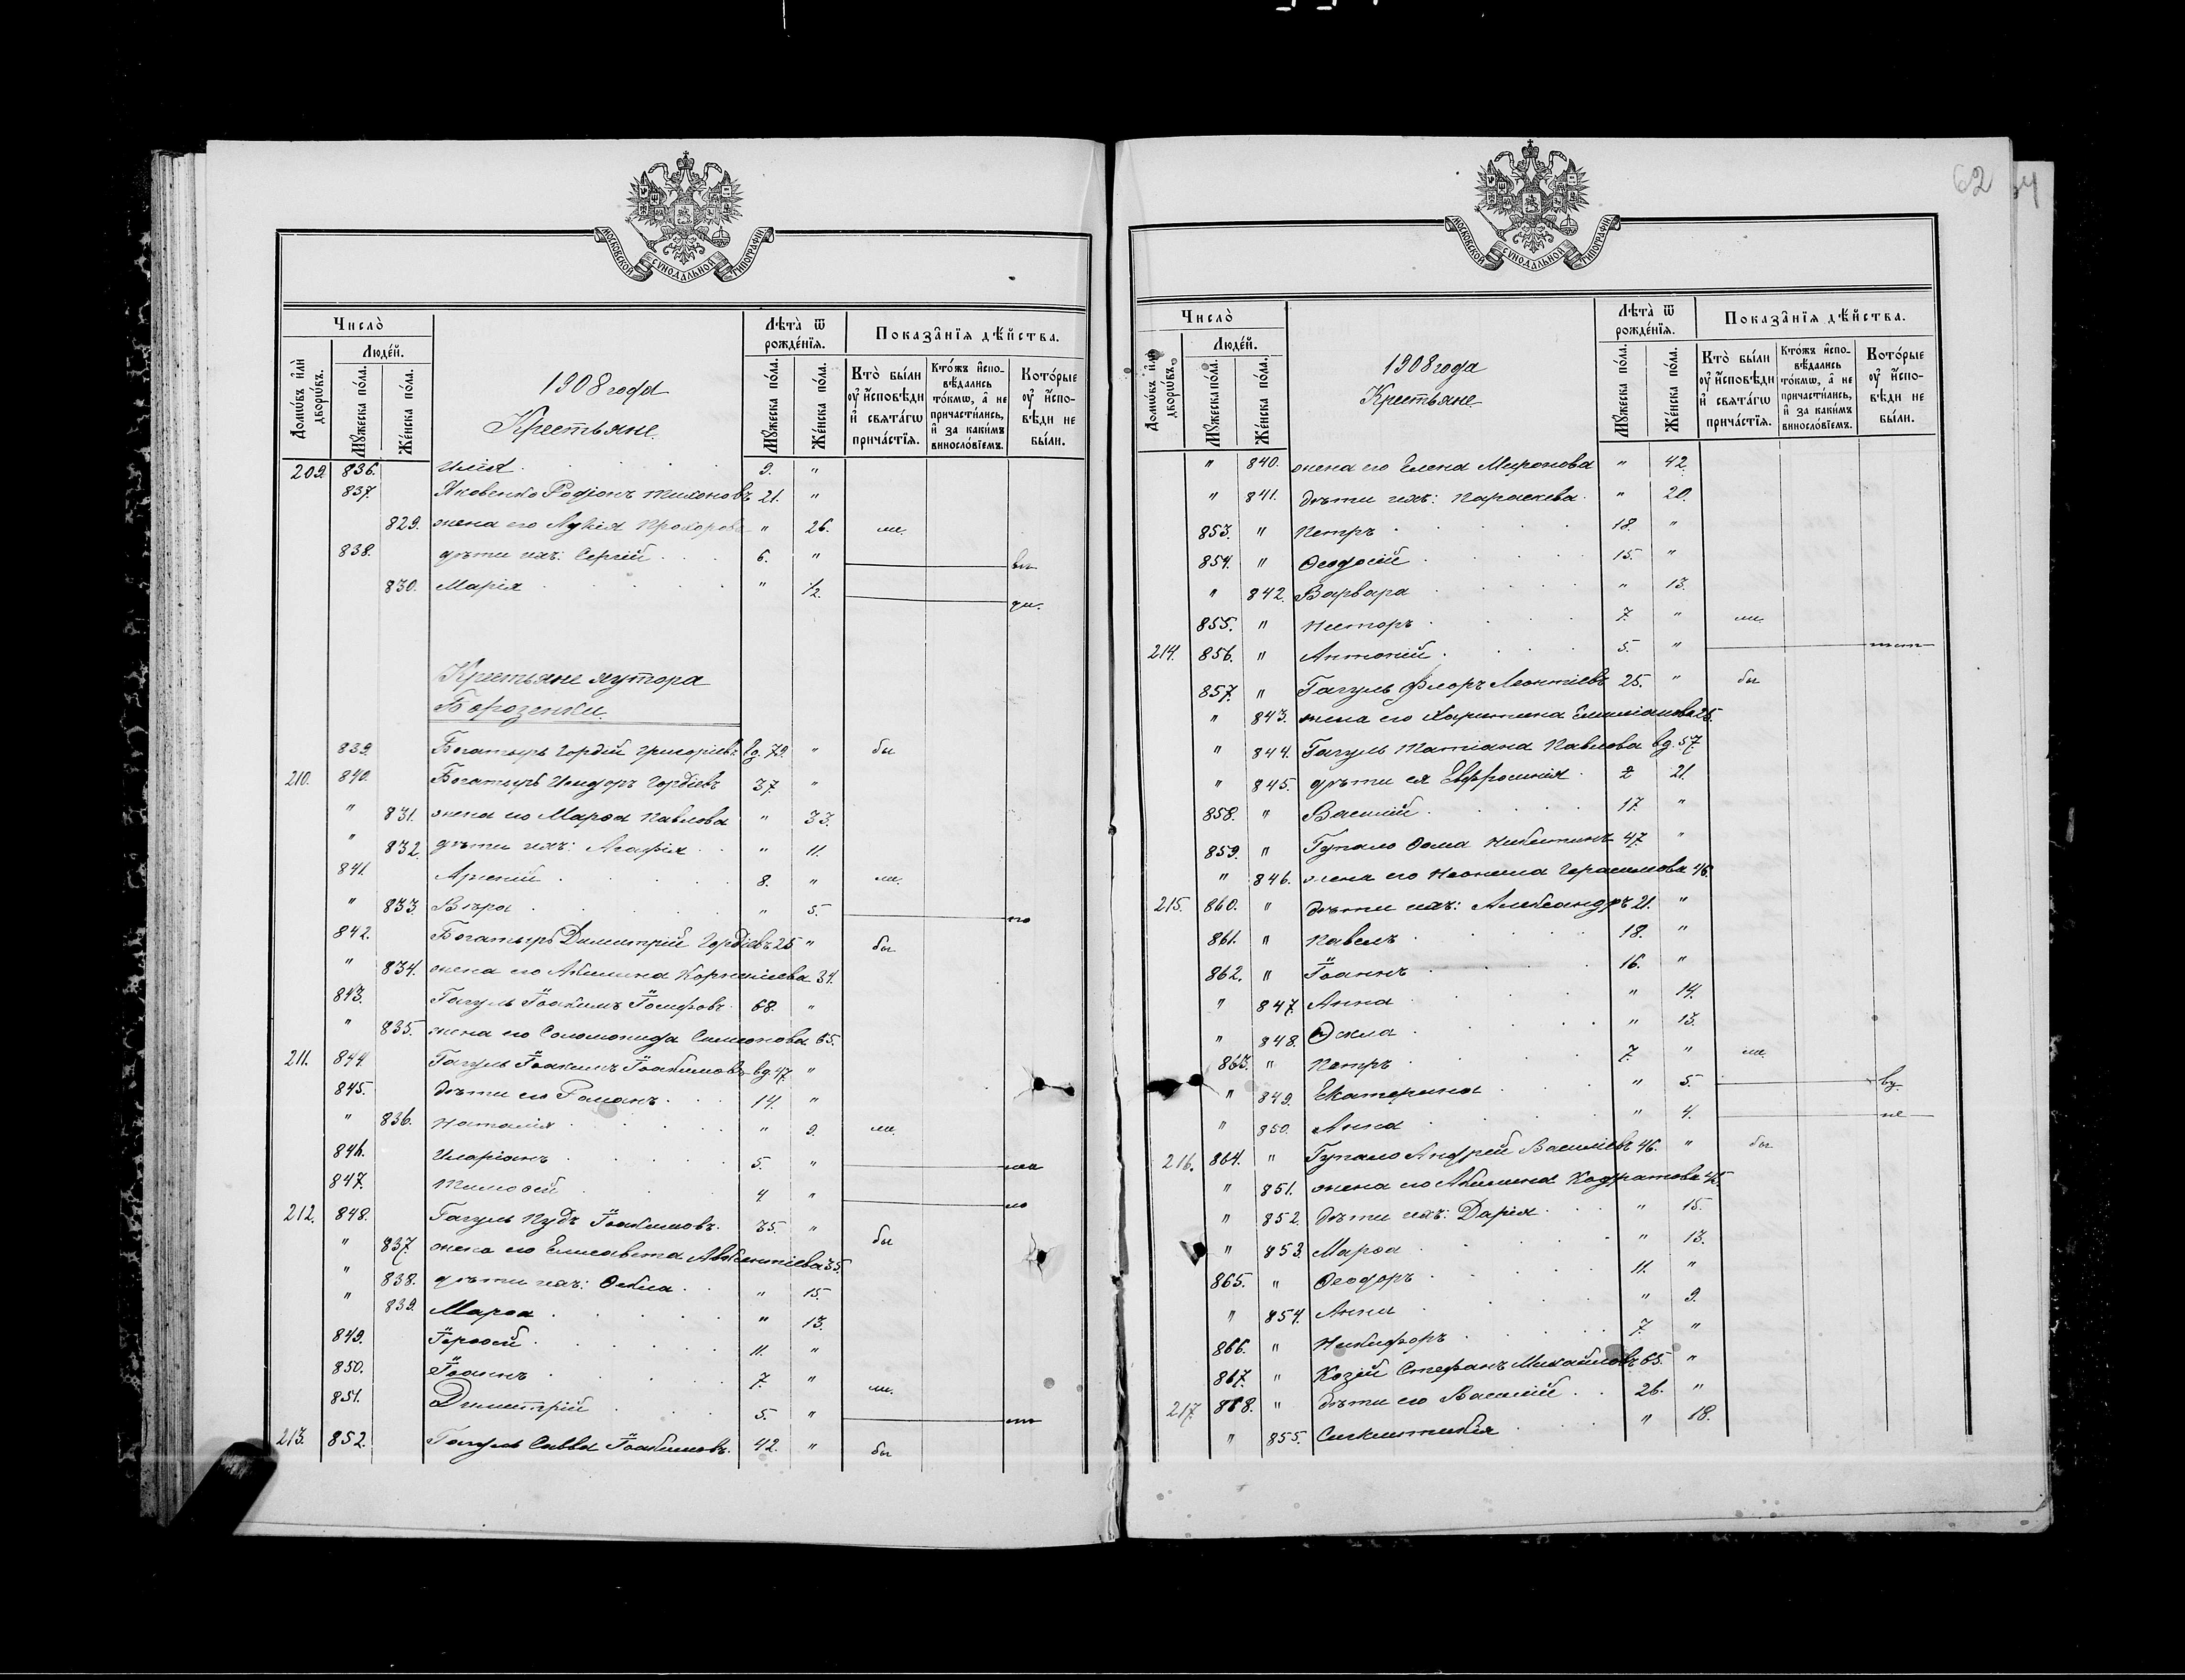 МОСКОВСКОЙ СѴНОДАЛЬНОЙ ТИПОГРАФІИ
Число̀
Домѡ́въ и҆лѝ дворѡ́въ.
Люде́й.
Мꙋ́жеска по́ла.
Же́нска по́ла.
1908 года
Крестьяне.
Лѣта̀ ѿ рожде́нїѧ.
Мꙋ́жеска по́ла.
Же́нска по́ла.
Показа̑нїѧ дѣ́йства.
Кто̀ бы́ли оу҆ и҆́сповѣди и҆ свѧта́гѡ прича́стїѧ.
Кто́жъ и҆спо-
вѣ́дались
то́кмѡ, а҆ не
причасти́лись,
и҆ за каки́мъ
виносло́вїемъ.
Кото́рые оу҆ и҆́спо-
вѣди не
бы́ли.
209. 836. Илія 9. "
837. Яковенко Родіонъ Тихоновъ 21. "
829. жена его Лукія Прохорова " 26. ме.
838. дѣти ихъ: Сергій 6. "
830. Марія " 1/2.
Крестьяне хутора
Борозенки.
839. Богатырь Гордій Григоріевъ вд. 79. " бы
210. 840. Богатырь Исидоръ Гордіевъ 37. "
" 831. жена его Марѳа Павлова " 33.
" 832. дѣти ихъ: Агафія " 11.
841. Арсеній 8. " ме.
" 833. Вѣра " 5. по
842. Богатырь Димитрій Гордіевъ 25 " бы
" 834. жена его Акилина Корниліева 31.
843. Гагуль Іоакимъ Іосифовъ 68. "
" 835. жена его Соломонида Симеонова 65.
211. 844. Гагуль Іоакимъ Іоакимовъ вд 47. "
845. дѣти его Романъ 14. "
" 836. Наталія " 9. ме.
846. Иларіонъ 5. "
847. Тимоѳей 4. "
212. 848. Гагуль Іоакимовъ. 35. " бы
" 837. жена его Елисавета Авксентіева 35.
" 838. дѣти ихъ: Ѳекла " 15.
" 839. Марѳа " 13.
849. Іероѳей 11. "
850. Іоаннъ 7. " ме.
851. Димитрій 5. "
213. 852. Гагуль Савва Іоакимовъ. 42. " бы
62
МОСКОВСКОЙ СѴНОДАЛЬНОЙ ТИПОГРАФІИ
Число̀
Домѡ́въ и҆лѝ дворѡ́въ.
Люде́й.
Мꙋ́жеска по́ла.
Же́нска по́ла.
1908 года
Крестьяне
Лѣта̀ ѿ рожде́нїѧ.
Мꙋ́жеска по́ла.
Же́нска по́ла.
Показа̑нїѧ дѣ́йства.
Кто̀ бы́ли оу҆ и҆́сповѣди и҆ свѧта́гѡ прича́стїѧ.
Кто́жъ и҆спо-
вѣ́дались
то́кмѡ, а҆ не
причасти́лись,
и҆ за каки́мъ
виносло́вїемъ.
Кото́рые оу҆ и҆́спо-
вѣди не
бы́ли.
" 840. жена его Елена Миронова " 42.
" 841. дѣти ихъ: Параскева " 20.
853. " Петръ 18. "
854. " Ѳеодосій 15. "
" 842. Варвара " 13.
855. " Несторъ 7. " ме.
214. 856. " Антоній 5. "
857. " Гагуль Флоръ Леонтіевъ 25. " бы
" 843. жена его Харитина Емиліанова 25.
" 844. Гагуль Татіана Павлова вд. 57
" 845. дѣти ея Евфросинія 21.
858. " Василій 17. "
859. " Гупало Ѳома Никитинъ 47. "
" 846. жена его Неонила Герасимова 46.
215. 860. " дѣти ихъ: Александръ 21. "
861. " Павелъ 18. "
862. " Іоаннъ 16. "
" 847. Анна " 14.
" 848. Ѳекла " 13.
863. " Петръ 7. " ме.
" 849. Екатерина " 5.
" 850. Анна " 4. не
216. 864. " Гупало Андрей Василіевъ 46. " бы
" 851. жена его Акилина Кодратова 45
" 852. дѣти ихъ: Дарія " 15.
" 853. Марѳа " 13.
865. " Ѳеодоръ 11. "
" 854. Анна " 9.
866. " Никифоръ 7. "
867. " Козій Стефанъ Михайловъ 65. "
217. 868. " дѣти его Василій 26. "
" 855. Синклитикія " 18.